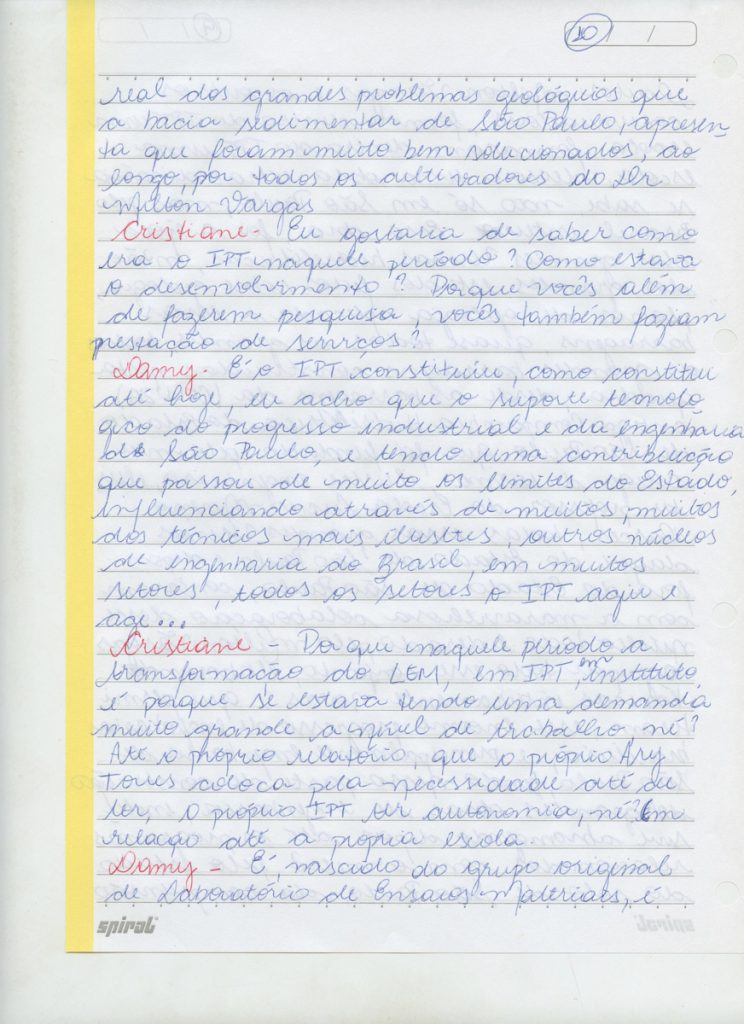 10
real dos grandes problemas geológuios que
a bacia sedimentar de São Paulo, apresen
ta que foram muito bem solucionados, ao
longo, por todos os cultivadores do Dr
Milton Vargas
Cristiane - Eu gostaria de saber como
era o IPT naquele período? Como estava
o desenvolvimento? Porque vocês além
de fazerem pesquisa, vocês também faziam
prestação de serviços?
Damy - É o IPT constituiu, como constitui
até hoje, eu acho que o suporte tecnoló
gico do progresso industrial e da engenharia
de São Paulo, e tendo uma contribuição
que passou de muito os limites do Estado,
influenciando através de muitos, muitos
dos técnicos mais ilustres, outros núcleos
de engenharia do Brasil, em muitos
setores, todos os setores o IPT aqui e
age...
Cristiane - Porque naquele período a
transformação do LEM, em IPT, em instituto,
é porque se estava tendo uma demanda
muito grande a nível de trabalho, né?
Até o próprio relatório, que o próprio Ary
Torres coloca pela necessidade até de
ter, o próprio IPT ter autonomia, né? Em
relação até a própria escola.
Damy - É, nascido do grupo original
de Laboratório de Ensaios Materiais, é
spiral